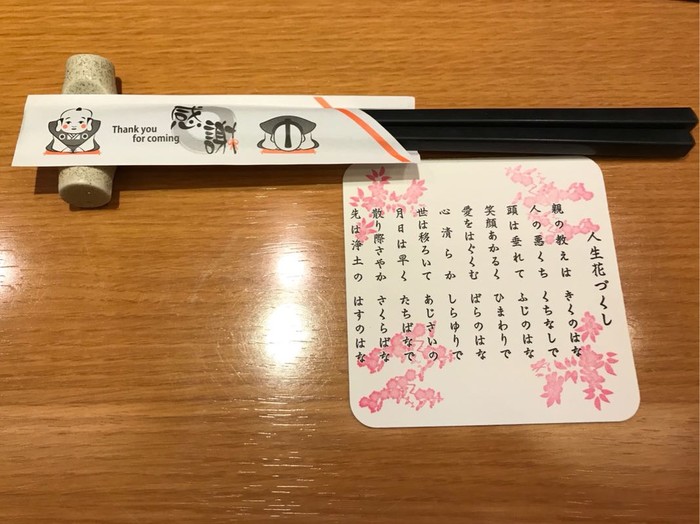 Thank you
for coming
感謝
人生花づくし
親の教えは きくのはな
人の悪くち くちなしで
頭は垂れて ふじのはな
笑顔あかるく ひまわりで
愛をはぐくむ ばらのはな
心清らか しらゆりで
世は移ろいて あじさいの
月日は早く たちばなで
散り際さやか さくらばな
先は浄土の はすのはな